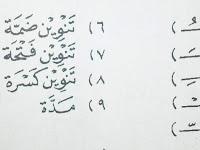 ٦) تَنْوِيْن ضَمَّة
٧) تَنْوِيْن فَتْحَة
٨) تَنْوِيْن كَسْرَة
٩) مَدَّة